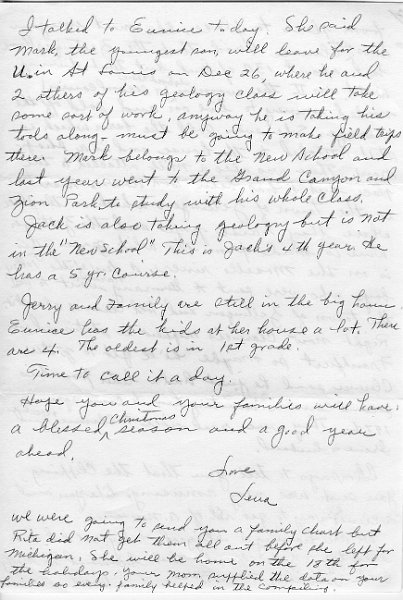 I talked to Eunice today. She said
Mark, the youngest son, will leave for the
U. in St Louis on Dec 26, where he and
2 others of his geology class will take
some sort of work, anyway he is taking his
tools along - must be going to make field trips
there. Mark belongs to the New School and
last year went to the Grand Canyon and
Zion Park, to study with his whole class.
Jack is also taking geology but is not
in the "New School" This is Jack's 4th year. He
has a 5 yr. course.
Jerry and Family are still in the big house.
Eunice has the kids at her house a lot. There
are 4. The oldest is in 1st grade.
Time to call it a day.
Hope you and your families will have
a blessed Christmas season and a good year
ahead.
Love
Lena
We were going to send you a family chart but
Rita did not get them all out before she left for
Michigan. She will be home on the 18th for
the holidays. Your Mom supplied the data on your
families so every family helped in the compiling.